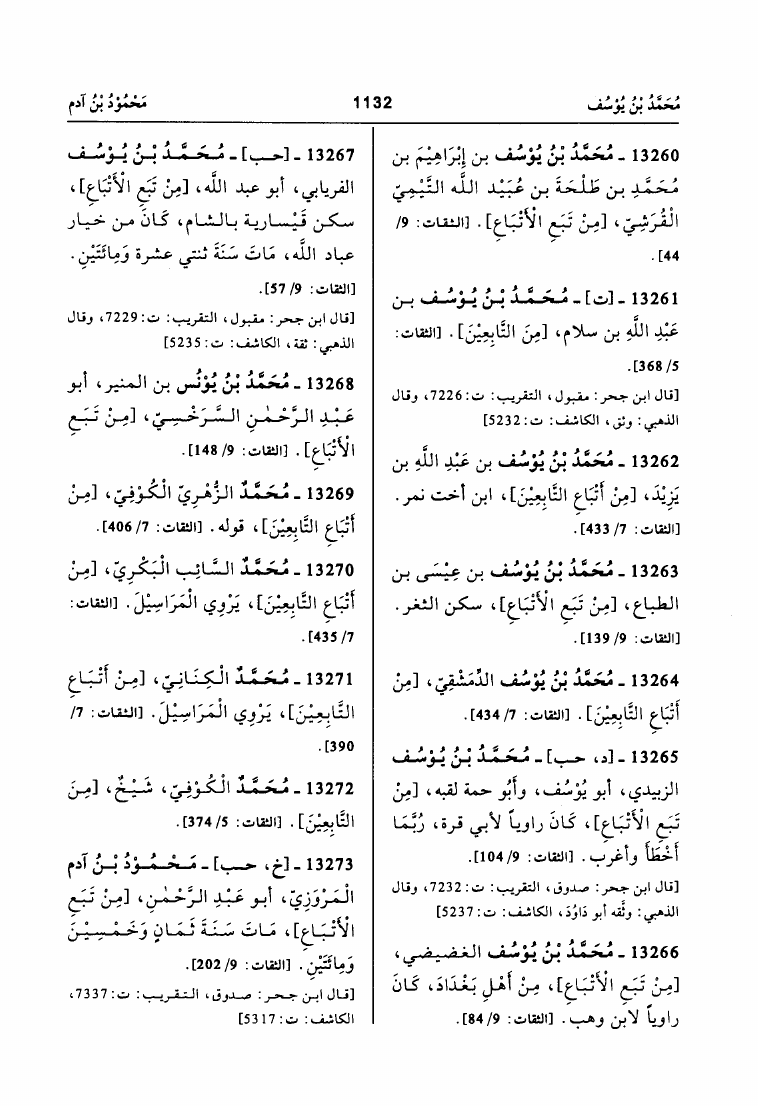 مُحَمَّدُ بْنُ يُوْسُف 1132 مَحْمُودُ بْنُ آدم
13260 ـ مُحَمَّدُ بْنُ يُوْسُف بن إِبْرَاهِيْمَ بن
مُحَمَّدِ بن طَلْحَةَ بن عُبَيْدِ اللَّه التَّيْمِيّ
الْقُرَشِيّ، [مِنْ تَبَعِ الْأَتْبَاعِ]. [الثقات: 9/
44].
13261 ـ [ت] ـ مُحَمَّدُ بْنُ يُوْسُف بن
عَبْدِ اللَّهِ بن سلام، [مِنَ التَّابِعِيْنَ]. [الثقات:
5/ 368].
[قال ابن حجر: مقبول، التقريب: ت:7226، وقال
الذهبي: وثق، الكاشف: ت:5232]
13262 ـ مُحَمَّدُ بْنُ يُوْسُف بن عَبْدِ اللَّهِ بن
يَزِيْدَ، [مِنْ أَتْبَاعِ التَّابِعِيْنَ]، ابن أخت نمر.
[الثقات: 7/ 433].
13263 ـ مُحَمَّدُ بْنُ يُوْسُف بن عِيْسَى بن
الطباع، [مِنْ تَبَعِ الْأَتْبَاعِ]، سكن الثغر.
[الثقات: 9/ 139].
13264 ـ مُحَمَّدُ بْنُ يُوْسُف الدِّمَشْقِيّ، [مِنْ
أَتْبَاعِ التَّابِعِيْنَ]. [الثقات: 7/ 434].
13265 ـ [د، حب] ـ مُحَمَّدُ بْنُ يُوْسُف
الزبيدي، أبو يُوْسُف، وأَبُو حمة لقبه، [مِنْ
تَبَعِ الْأَتْبَاعِ]، كَانَ راوياً لأبي قرة، رُبَّمَا
أَخْطَأَ وأغرب. [الثقات: 9/ 104].
[قال ابن حجر: صدوق، التقريب: ت:7232، وقال
الذهبي: وثَّقه أبو دَاوُدَ، الكاشف: ت:5237]
13266 ـ مُحَمَّدُ بْنُ يُوْسُف الغضيضي،
[مِنْ تَبَعِ الْأَتْبَاعِ]، مِنْ أَهْلِ بَغْدَادَ، كَانَ
راوياً لابن وهب. [الثقات: 9/ 84].
13267 ـ [حب] ـ مُحَمَّدُ بْنُ يُوْسُف
الفريابي، أبو عبد اللَّه، [مِنْ تَبَعِ الْأَتْبَاعِ]،
سكن قَيْسارية بالشام، كَانَ من خيار
عباد اللَّه، مَاتَ سَنَةَ ثنتي عشرة وَمِائَتَيْنِ.
[الثقات: 9/ 57].
[قال ابن حجر: مقبول، التقريب: ت:7229، وقال
الذهبي: ثقة، الكاشف: ت:5235]
13268 ـ مُحَمَّدُ بْنُ يُوْنُس بن المنير، أبو
عَبْدِ الرَّحْمٰنِ السَّرَخْسِيّ، [مِنْ تَبَعِ
الْأَتْبَاعِ]. [الثقات: 9/ 148].
13269 ـ مُحَمَّدٌ الزُّهْرِيّ الْكُوْفِيّ، [مِنْ
أَتْبَاعِ التَّابِعِيْنَ]، قوله. [الثقات: 7/ 406].
13270 ـ مُحَمَّدٌ السَّائِب الْبَكْرِيّ، [مِنْ
أَتْبَاعِ التَّابِعِيْنَ]، يَرْوِي الْمَرَاسِيْلَ. [الثقات:
7/ 435].
13271 ـ مُحَمَّدٌ الْكِنَانِيّ، [مِنْ أَتْبَاعِ
التَّابِعِيْنَ]، يَرْوِي الْمَرَاسِيْلَ. [الثقات: 7/
390].
13272 ـ مُحَمَّدٌ الْكُوْفِيّ، شَيْخٌ، [مِنَ
التَّابِعِيْنَ]. [الثقات: 5/ 374].
13273 ـ [خ، حب] ـ مَحْمُوْدُ بْنُ آدم
الْمَرْوَزِيّ، أبو عَبْدِ الرَّحْمٰنِ، [مِنْ تَبَعِ
الْأَتْبَاعِ]، مَاتَ سَنَةَ ثَمَانٍ وَخَمْسِيْنَ
وَمِائَتَيْنِ. [الثقات: 9/ 202].
[قال ابن حجر: صدوق، التقريب: ت:7337،
الكاشف: ت:5317]